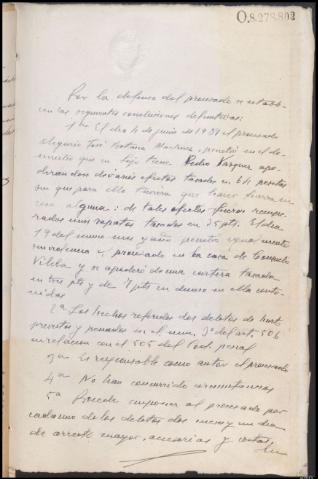 O.8.278.802
Por la defensa del procesado se establ-
cen las siguientes conclusiones definitivas:
1ª El dia 4 de junio de 1937 el procesado
José Martinez, penetró en el do-
micilio que en tiene Pedro Vazquez apo-
derandose de varios efectos tasados en 64 pesetas
sin que para ello tuviera que hacer fuerza en
cosa alguna: de tales efectos fueron recupe-
rados unos zapatos tasados en 25 pts. El dia
19 del mismo mes y año penetró igualmente
sin violencia el procesado en la casa de Consuelo
Vilela y se apoderó de una cartera tasada
en tres pts y de 7 pts en dinero en ella conte-
nidas
2ª Los hechos referidos dos delitos de hurto
previstos y penados en el num. 3º del art. 506
en relacion con el 505 del Cod. penal
3ª Es responsable como autor el procesado
4ª No han concurrido circunstancias
5ª Procede imponer al procesado por
cada uno de los delitos dos meses y un dia
de arresto mayor, accesorias y costas